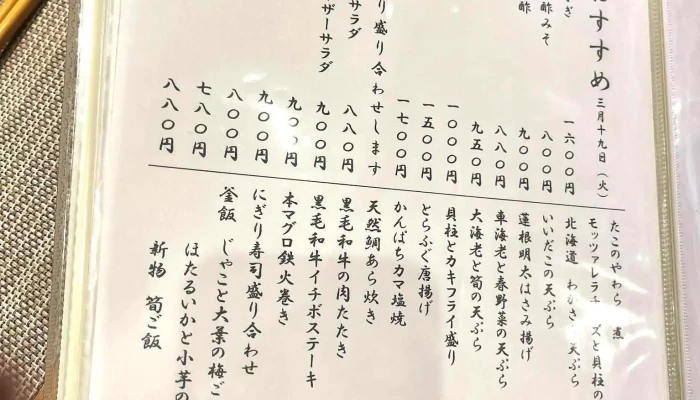 すすめ 三月十九日（火）
ぎ 一六〇〇円
酢みそ 八〇〇円
酢 九〇〇円
八八〇円
九五〇円
一〇〇〇円
一五〇〇円
一七〇〇円
り盛り合わせします
サラダ 八八〇円
ザーサラダ 九〇〇円
九〇〇円
九〇〇円
八〇〇円
七八〇円
八八〇円
たこのやわら 煮
モッツァレラチ ズと貝柱の
北海道 わかさ 天ぷら
いいだこの天ぷら
蓮根明太はさみ揚げ
車海老と春野菜の天ぷら
大海老と筍の天ぷら
貝柱とカキフライ盛り
とらふぐ唐揚げ
かんぱちカマ塩焼
天然鯛あら炊き
黒毛和牛の肉たたき
黒毛和牛イチボステーキ
本マグロ鉄火巻き
にぎり寿司盛り合わせ
釜飯 じゃこと大葉の梅ご
ほたるいかと小芋の
新物 筍ご飯